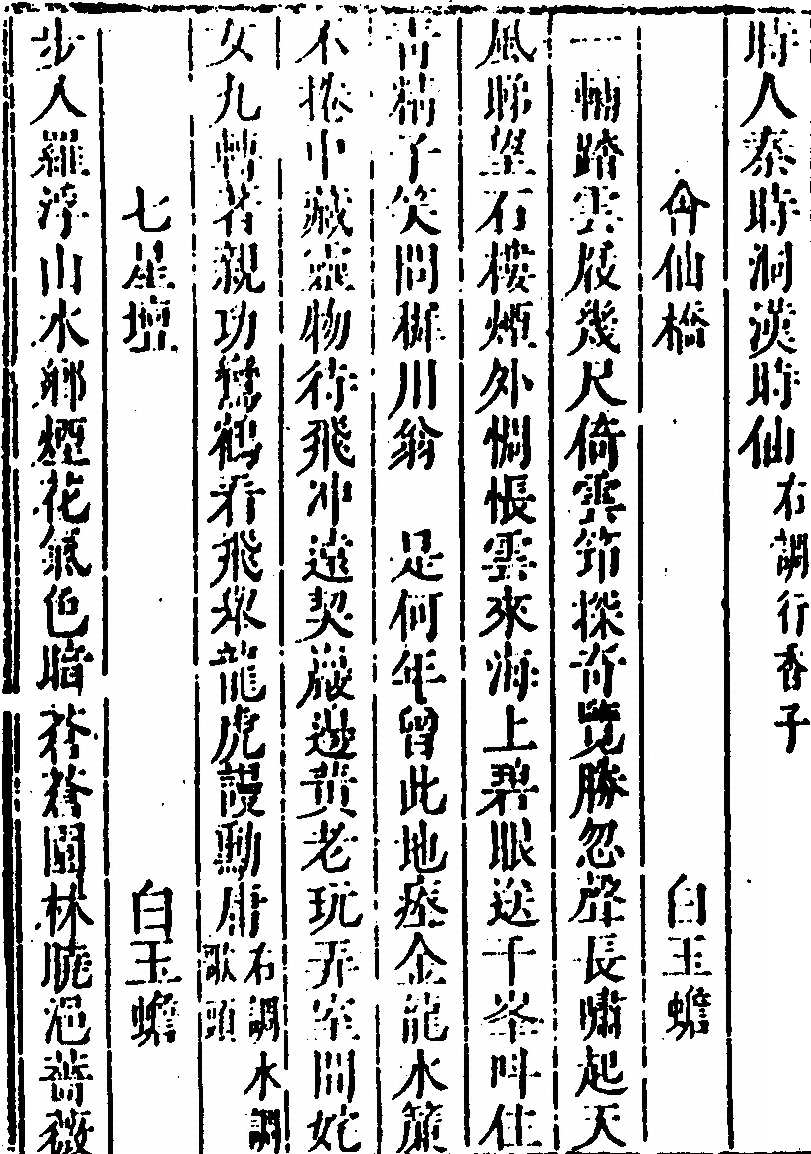 時人秦時洞漢時仙右調行香子
會仙橋 白玉蟾
一輛踏雲屐幾尺倚雲筇探奇覽勝忽聲長嘯起天
風睇望石樓煙外惆悵雲來海上碧眼送千峯叫住
青精子笑問稚川翁 是何年曾此地瘞金龍水簾
不捲中藏靈物待飛冲遠契巖邊黃老玩弄室間姹
女九轉若親功鸞鶴看飛衆龍虎謾勳庸右調水調歌頭
七星壇 白玉蟾
步入羅浮山水鄉煙花氣色暗蒼蒼園林曉浥薔薇